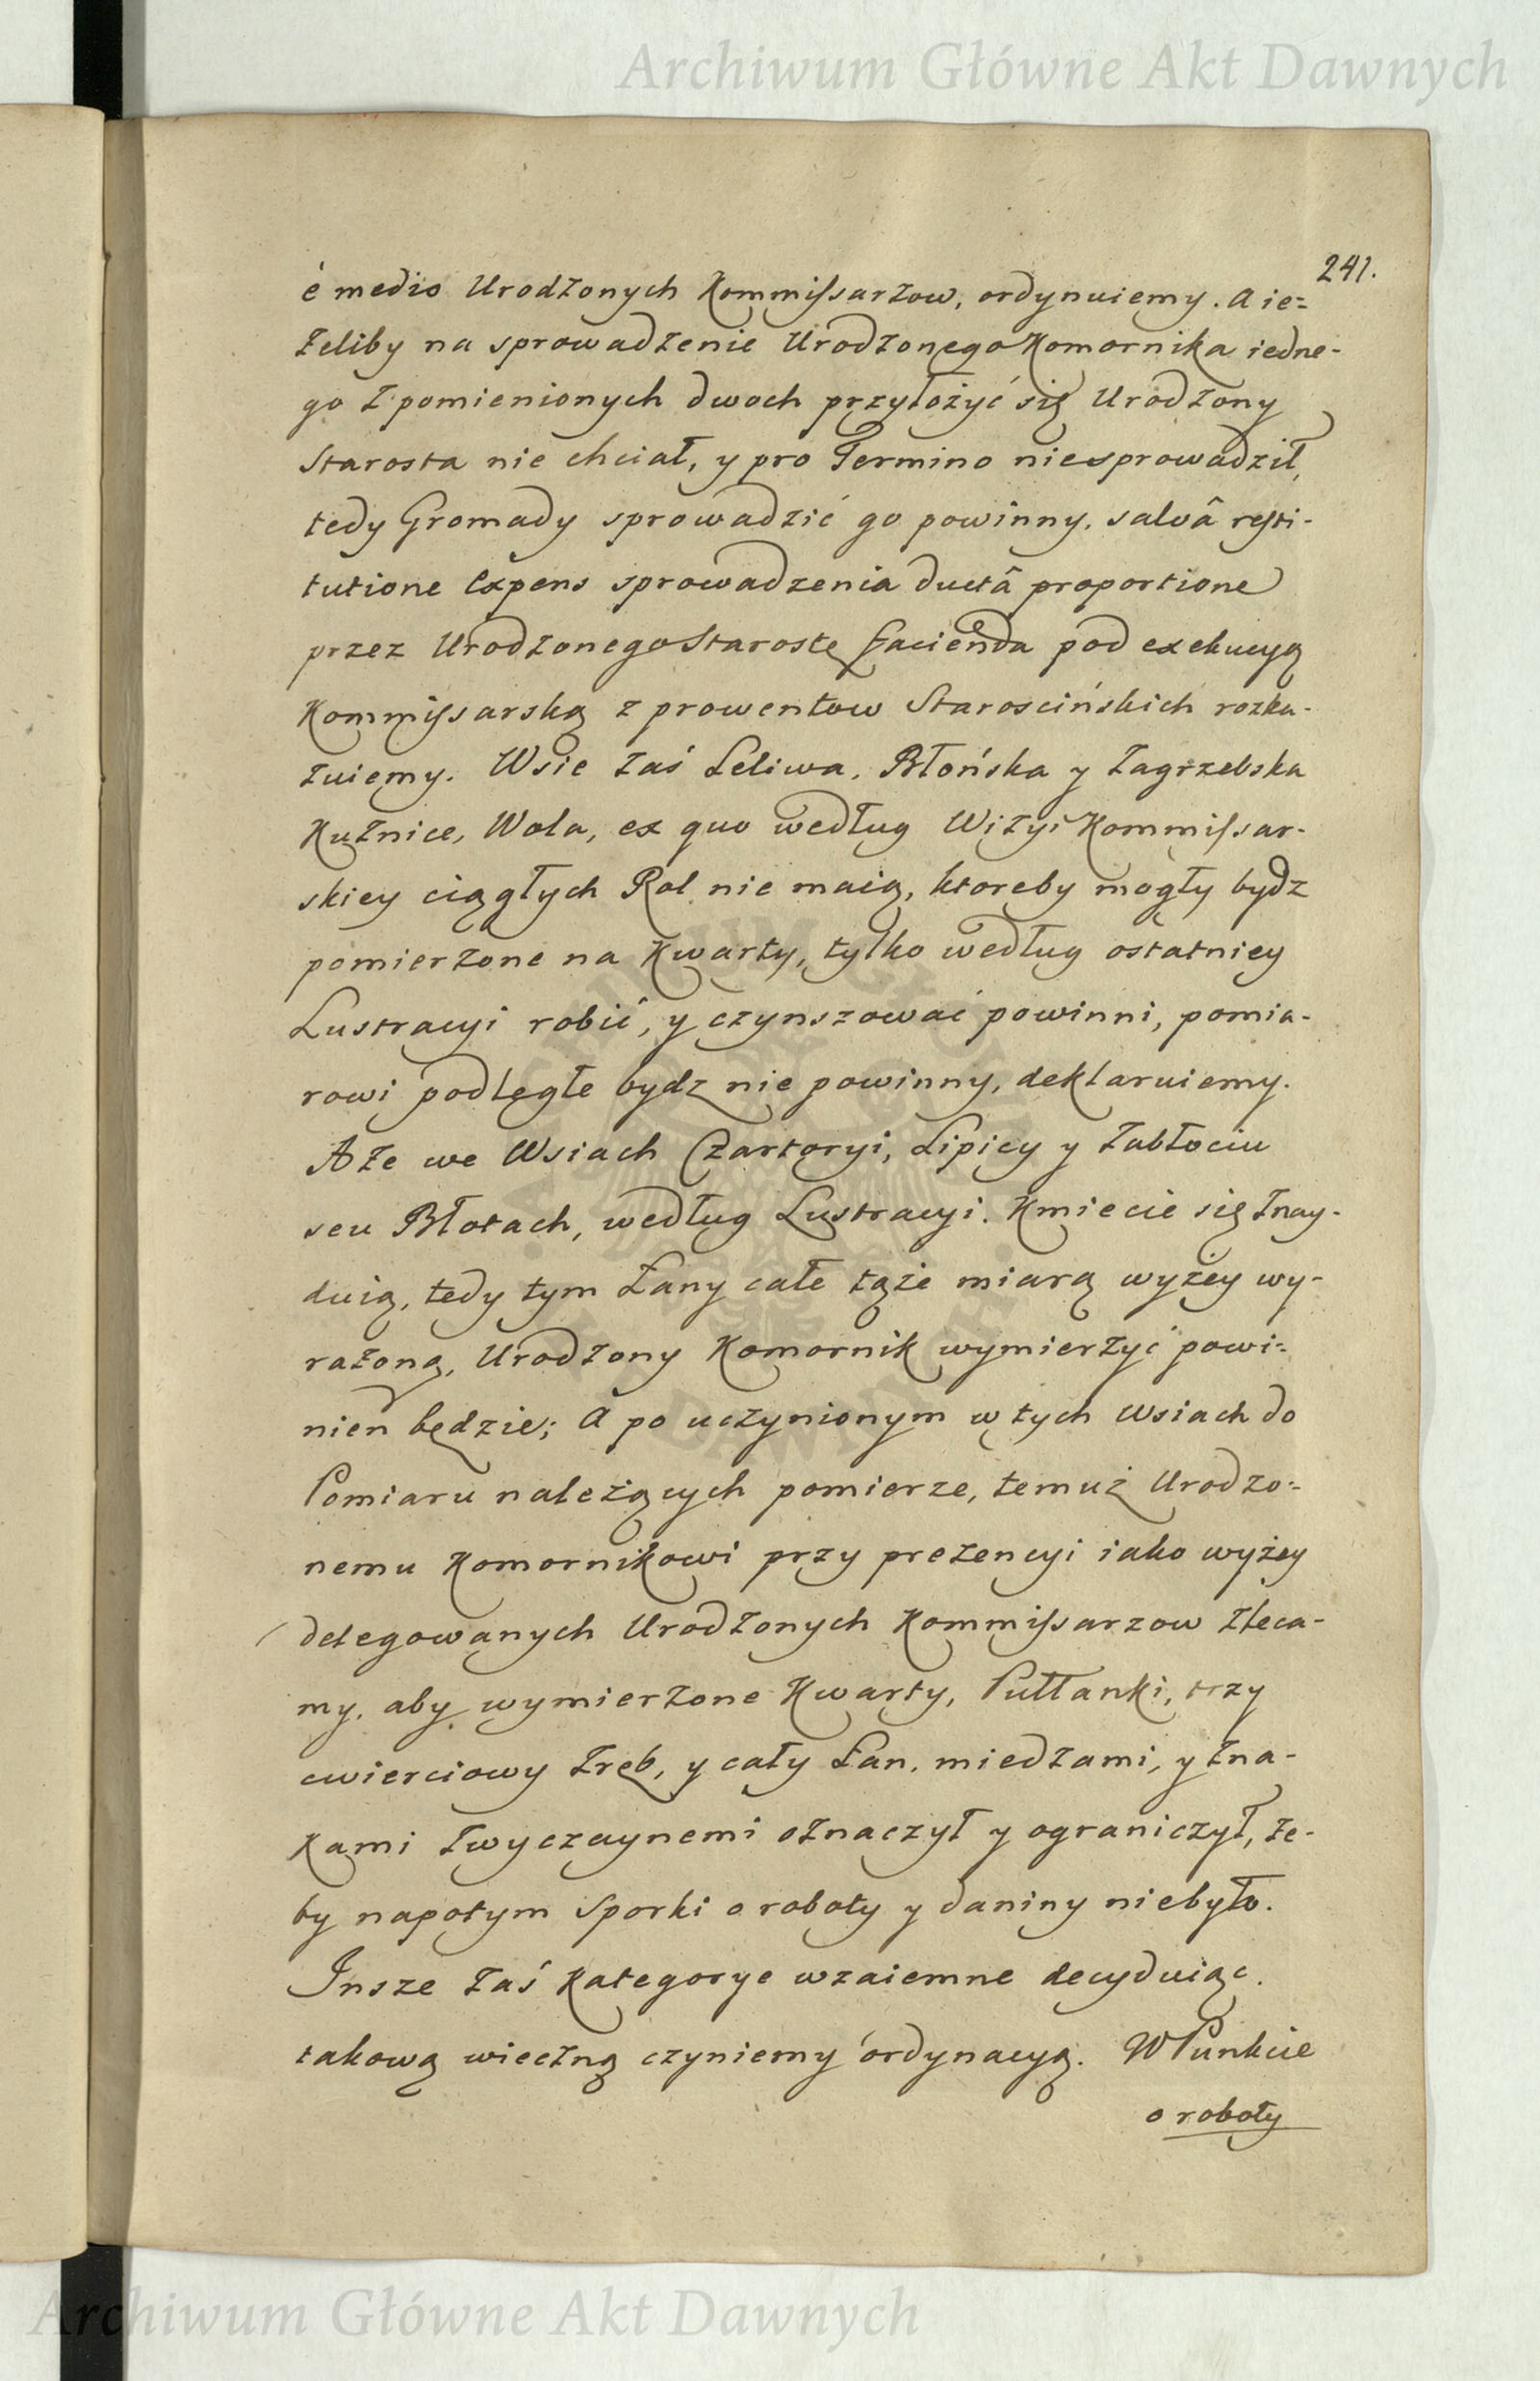 Archiwum Główne Akt Dawnych
241.
é medio Urodzonych Kommissarzow, ordynuiemy. A ie=
żeliby na sprowadzenie Urodzonego Komornika iedne-
go z pomienionych dwoch przyłożyć się Urodzony
Starosta nie chciał, y pro Termino niesprowadził,
tedy Gromady sprowadzić go powinny, salvâ resti-
tutione Expens sprowadzenia ductâ proportione
przez Urodzonego Starostę facienda pod exekucyą
Kommissarską z prowentow Starościńskich rozka-
zuiemy. Wsie zaś Leliwa, Błońska y Zagrzebska
Kuźnice, Wola, ex quo według Wizyi Kommissar-
skiey ciągłych Rol nie maią, ktoreby mogły bydz
pomierzone na Kwarty, tylko według ostatniey
Lustracyi robić, y czynszować powinni, pomia-
rowi podległe bydz nie powinny, deklaruiemy.
A że we Wsiach Czartoryi, Lipicy y Zabłociu
seu Błotach, według Lustracyi. Kmiecie się znay-
duią, tedy tym Łany całe tąże miarą wyżey wy-
rażoną, Urodzony Komornik wymierzyć powi=
nien będzie; A po uczynionym w tych Wsiach do
Pomiaru należących pomierze, temuż Urodzo=
nemu Komornikowi przy prezencyi iako wyżey
delegowanych Urodzonych Kommissarzow zleca-
my, aby wymierzone Kwarty, Pułłanki, trzy
cwierciowy Zręb, y cały Łan, miedzami, y zna-
kami zwyczaynemi oznaczył y ograniczył, że-
by napotym sporki o roboty y daniny niebyło.
Insze zaś Kategorye wzaiemne decyduiąc.
takową wieczną czyniemy ordynacyą. W Punkcie
o roboty
Archiwum Główne Akt Dawnych